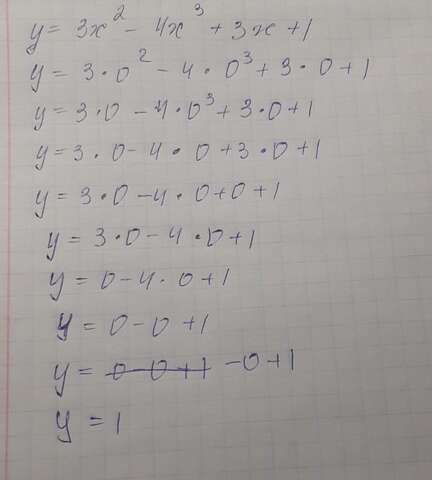 y = 3x² - 4x³ + 3x + 1
y = 3·0² - 4·0³ + 3·0 + 1
y = 3·0 - 4·0³ + 3·0 + 1
y = 3·0 - 4·0 + 3·0 + 1
y = 3·0 - 4·0 + 0 + 1
y = 3·0 - 4·0 + 1
y = 0 - 4·0 + 1
y = 0 - 0 + 1
y = ~~0 - 0 + 1~~ - 0 + 1
y = 1